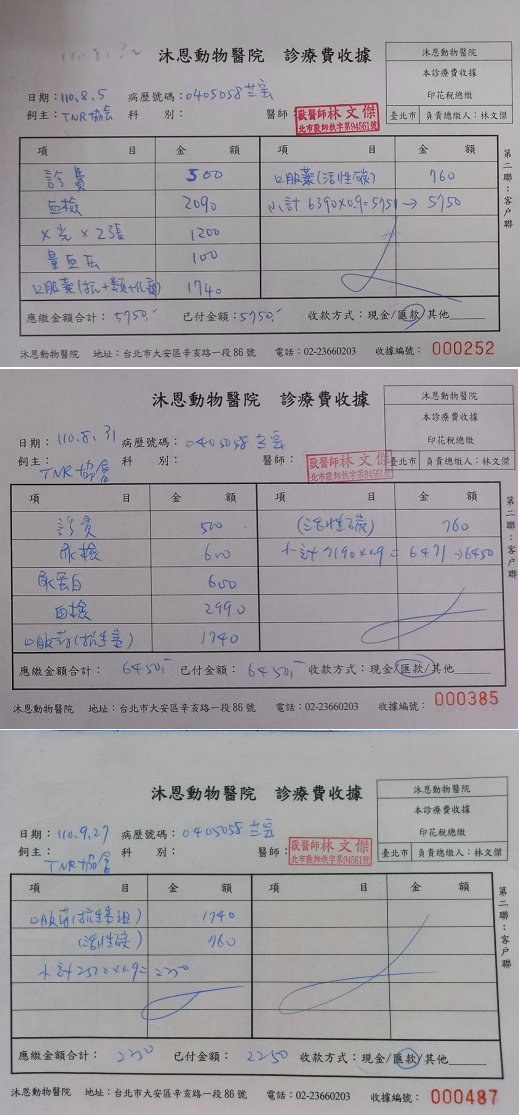 110.8.32
沐恩動物醫院 診療費收據
沐恩動物醫院
本診療費收據
印花稅總繳
臺北市 負責總繳人:林文傑
日期:110.8.5 病歷號碼:0405058 芝蜜
飼主:TNR協會 科 別: 醫師:
獸醫師林文傑
北市獸師執字第94561號
項 目 金 額 項 目 金 額
診費 500 口服藥(活性碳) 760
血檢 2090 小計 6390x0.9=5751 → 5750
X光x2張 1200
量血压 100
口服藥 1740
應繳金額合計:5750.- 已付金額:5750.- 收款方式:現金/匯款/其他
第二聯:客戶聯
沐恩動物醫院 地址:台北市大安區辛亥路一段86號 電話:02-23660203 收據編號: 000252
沐恩動物醫院 診療費收據
沐恩動物醫院
本診療費收據
印花稅總繳
臺北市 負責總繳人:林文傑
日期:110.8.31 病歷號碼:0405058 芝蜜
飼主:TNR協會 科 別: 醫師:
獸醫師林文傑
北市獸師執字第94561號
項 目 金 額 項 目 金 額
診費 500 (活性碳) 760
尿檢 600 小計7190x0.9= 6471→6450
尿蛋白 600
血檢 2990
口服药(抗生素) 1740
應繳金額合計: 6450.- 已付金額: 6450.- 收款方式:現金/匯款/其他
第二聯:客戶聯
沐恩動物醫院 地址:台北市大安區辛亥路一段86號 電話:02-23660203 收據編號: 000385
沐恩動物醫院 診療費收據
沐恩動物醫院
本診療費收據
印花稅總繳
臺北市 負責總繳人:林文傑
日期:110.9.27 病歷號碼:0405058 芝蜜
飼主:TNR協會 科 別: 醫師:
獸醫師林文傑
北市獸師執字第94561號
項 目 金 額 項 目 金 額
口服药(抗生素 1740
(活性碳) 760
小計2500x0.9= 2250
應繳金額合計: 2250 已付金額: 2250 收款方式:現金/匯款/其他
第二聯:客戶聯
沐恩動物醫院 地址:台北市大安區辛亥路一段86號 電話:02-23660203 收據編號: 000487